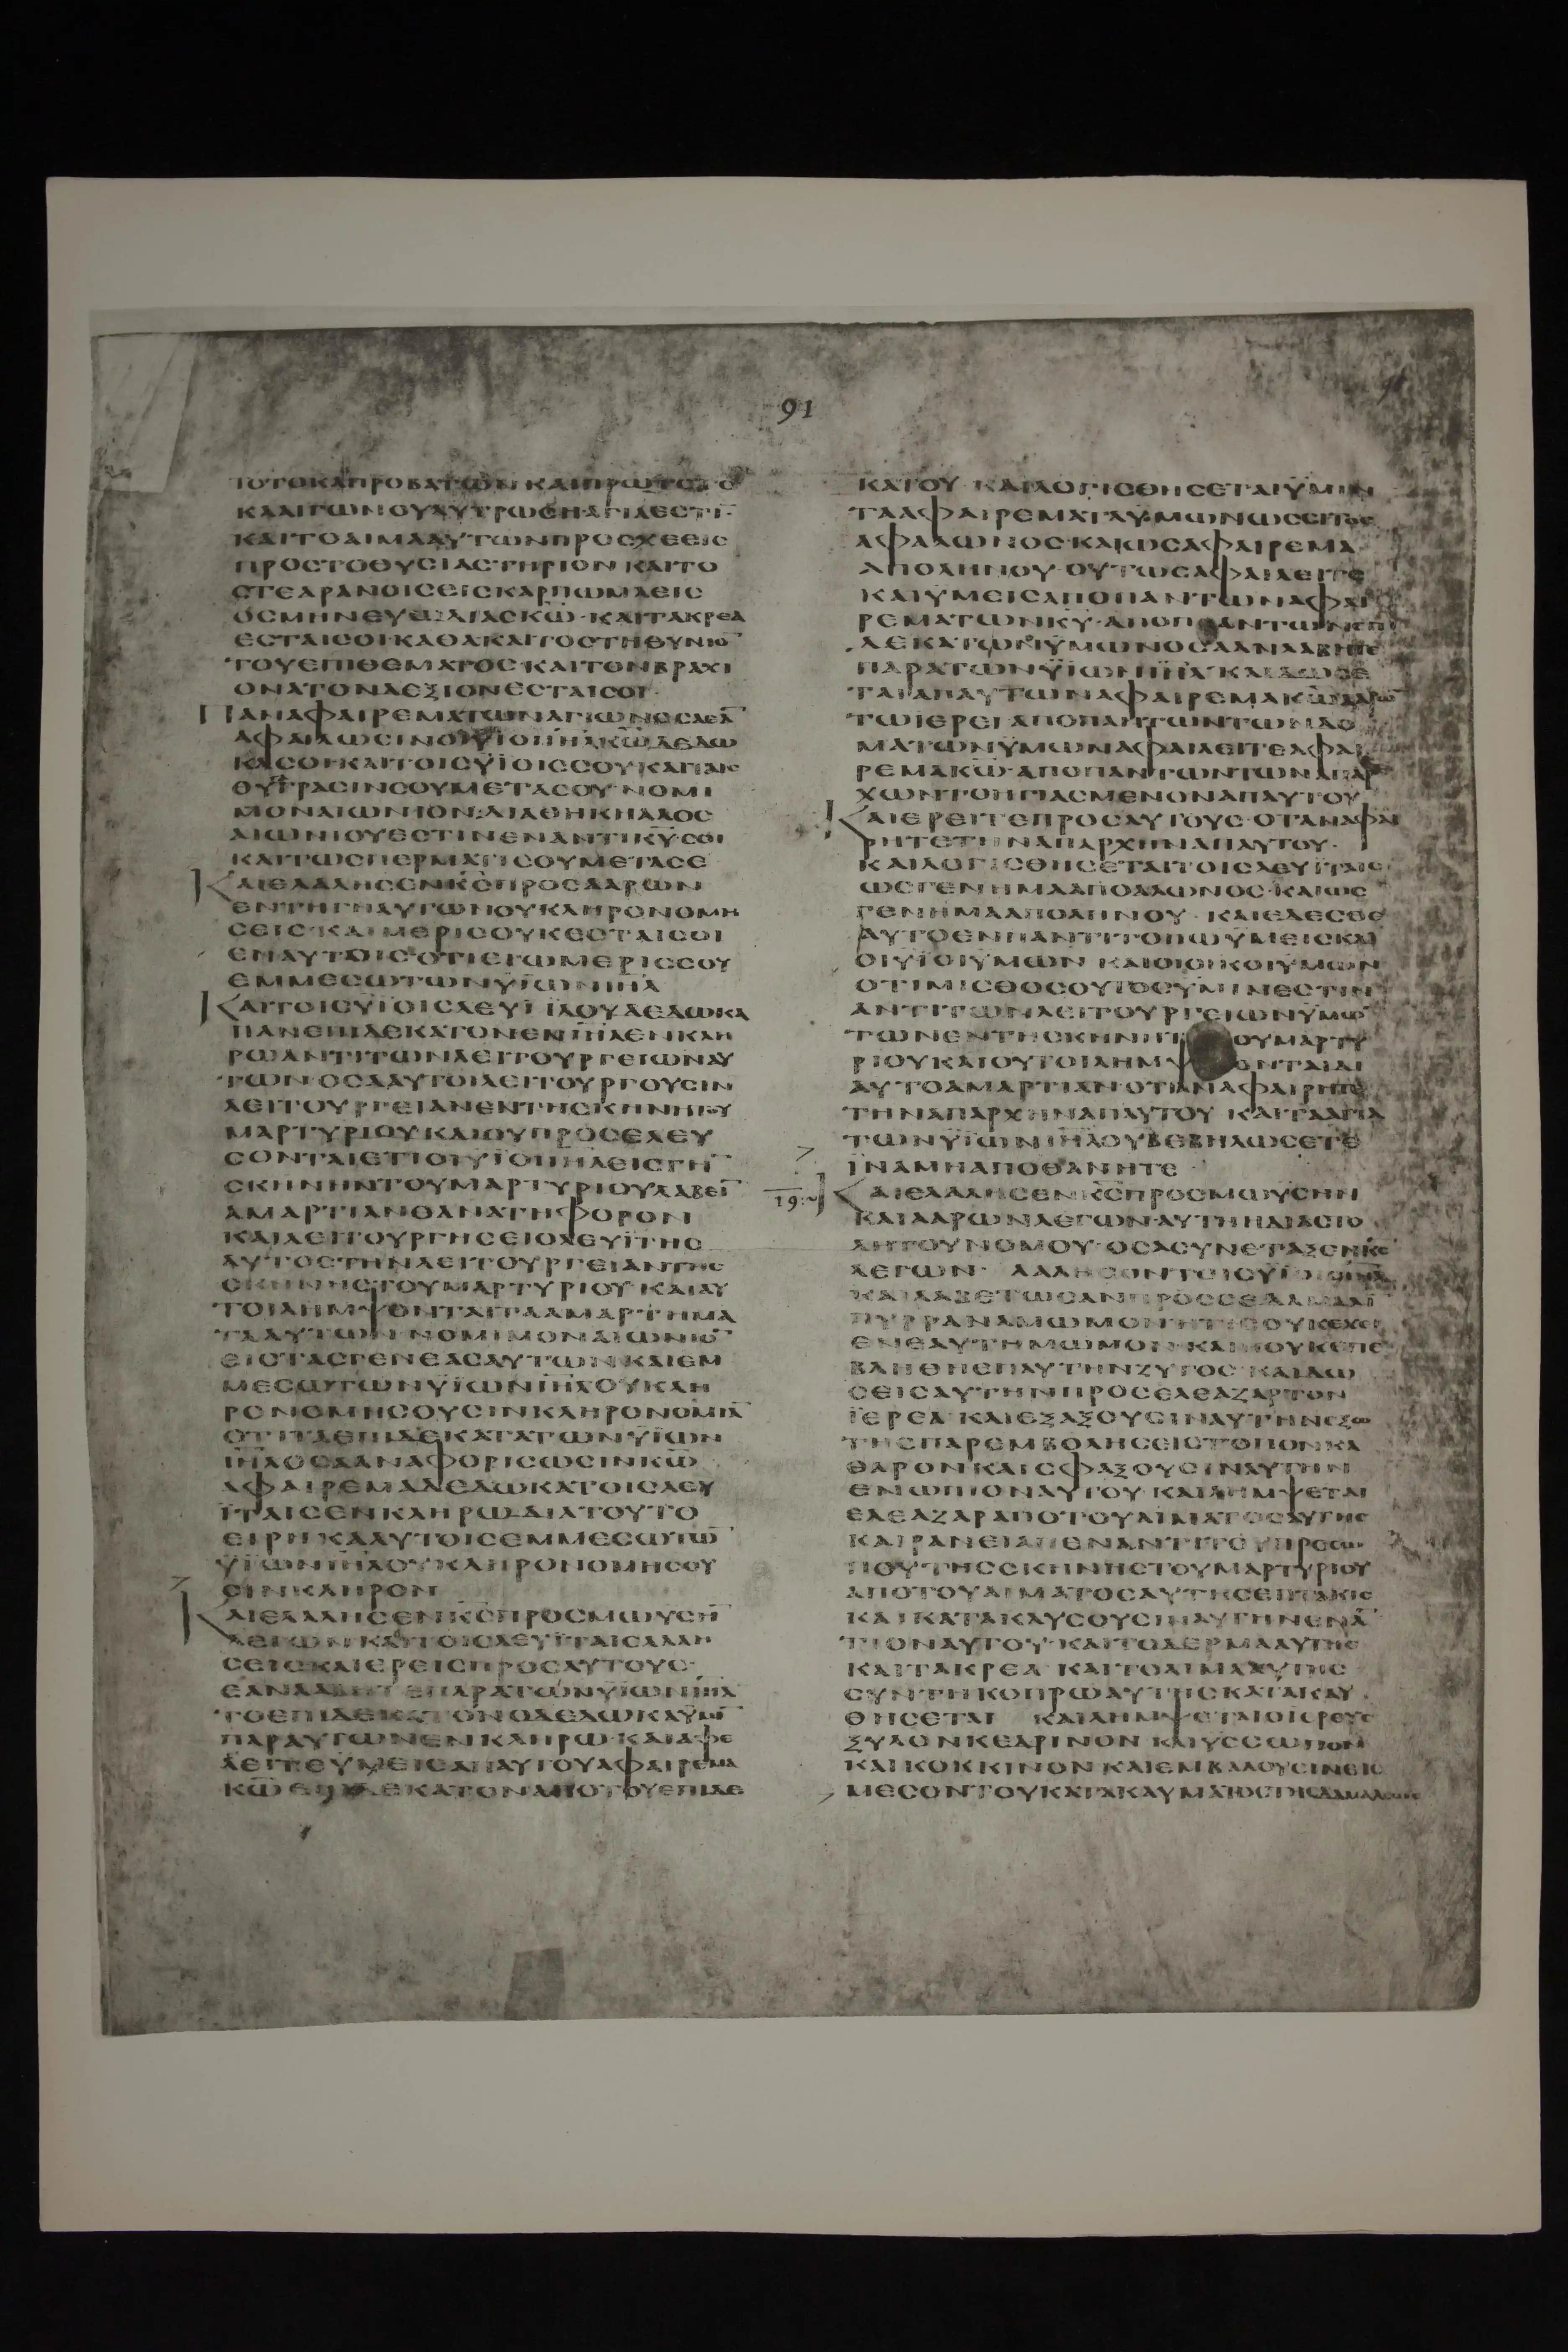 91
ΤΟΤΟΚΑΠΡΟΒΑΤΩΝΚΑΙΠΡΩΤΟΤΟ
ΚΑΑΙΓΩΝΟΥΛΥΤΡΩΣΗΑΓΙΑΕΣΤΙ̅
ΚΑΙΤΟΑΙΜΑΑΥΤΩΝΠΡΟΣΧΕΕΙΣ
ΠΡΟΣΤΟΘΥΣΙΑΣΤΗΡΙΟΝΚΑΙΤΟ
ΣΤΕΑΡΑΝΟΙΣΕΙΣΚΑΡΠΩΜΑΕΙΣ
ΟΣΜΗΝΕΥΩΔΙΑΣΚ̅Ω̅·ΚΑΙΤΑΚΡΕΑ
ΕΣΤΑΙΣΟΙΚΑΘΑΚΑΙΤΟΣΤΗΘΥΝΙΟ̅
ΤΟΥΕΠΙΘΕΜΑΤΟΣΚΑΙΤΟΝΒΡΑΧΙ
ΟΝΑΤΟΝΔΕΞΙΟΝΕΣΤΑΙΣΟΙ·
ΠΑΝΑΦΑΙΡΕΜΑΤΩΝΑΓΙΩΝΟΣΑΕΑ̅
ΑΦΑΙΛΩΣΙΝΟΙΫΙΟΙΙ̅Η̅Λ̅Κ̅Ω̅ΔΕΔΩ
ΚΑΣΟΙΚΑΙΤΟΙΣΫΙΟΙΣΣΟΥΚΑΙΤΑΙΣ
ΘΥΓΑΤΡΑΣΙΝΣΟΥΜΕΤΑΣΟΥΝΟΜΙ
ΜΟΝΑΙΩΝΙΟΝ·ΔΙΑΘΗΚΗΑΛΟΣ
ΑΙΩΝΙΟΥΕΣΤΙΝΕΝΑΝΤΙΚ̅Υ̅ΣΟΙ
ΚΑΙΤΩΣΠΕΡΜΑΤΙΣΟΥΜΕΤΑΣΕ
ΚΑΙΕΛΑΛΗΣΕΝΚ̅Σ̅ΠΡΟΣΑΑΡΩΝ
ΕΝΤΗΓΗΑΥΤΩΝΟΥΚΛΗΡΟΝΟΜΗ
ΣΕΙΣ·ΚΑΙΜΕΡΙΣΟΥΚΕΣΤΑΙΣΟΙ
ΕΝΑΥΤΟΙΣΟΤΙΕΓΩΜΕΡΙΣΣΟΥ
ΕΜΜΕΣΩΤΩΝΫΙΩΝΙ̅Η̅Λ̅
ΚΑΙΤΟΙΣΫΙΟΙΣΛΕΥΙΪΔΟΥΔΕΔΩΚΑ
ΠΑΝΕΠΙΔΕΚΑΤΟΝΕΝΙ̅Η̅Λ̅ΕΝΚΛΗ
ΡΩΑΝΤΙΤΩΝΛΕΙΤΟΥΡΓΕΙΩΝΑΥ
ΤΩΝΟΣΑΑΥΤΟΙΛΕΙΤΟΥΡΓΟΥΣΙΝ
ΛΕΙΤΟΥΡΓΕΙΑΝΕΝΤΗΣΚΗΝΗΤΟΥ
ΜΑΡΤΥΡΙΟΥΚΑΙΟΥΠΡΟΣΕΛΕΥ
ΣΟΝΤΑΙΕΤΙΟΙΫΙΟΙΙ̅Η̅Λ̅ΕΙΣΤΗ̅
ΣΚΗΝΗΝΤΟΥΜΑΡΤΥΡΙΟΥΛΑΒΕΙ̅
ΑΜΑΡΤΙΑΝΘΑΝΑΤΗΦΟΡΟΝ
ΚΑΙΛΕΙΤΟΥΡΓΗΣΕΙΟΛΕΥΪΤΗΣ
ΑΥΤΟΣΤΗΝΛΕΙΤΟΥΡΓΕΙΑΝΤΗΣ
ΣΚΗΝΗΣΤΟΥΜΑΡΤΥΡΙΟΥΚΑΙΑΥ
ΤΟΙΛΗΜΨΟΝΤΑΙΤΑΑΜΑΡΤΗΜΑ
ΤΑΑΥΤΩΝΝΟΜΙΜΟΝΑΙΩΝΙΟ̅
ΕΙΣΤΑΣΓΕΝΕΑΣΑΥΤΩΝΚΑΙΕΜ
ΜΕΣΩΤΩΝΫΙΩΝΙ̅Η̅Λ̅ΟΥΚΛΗ
ΡΟΝΟΜΗΣΟΥΣΙΝΚΛΗΡΟΝΟΜΙΑ̅
ΟΤΙΤΑΕΠΙΔΕΚΑΤΑΤΩΝΫΙΩΝ
Ι̅Η̅Λ̅ΟΣΑΑΝΑΦΟΡΙΣΩΣΙΝΚ̅Ω̅
ΑΦΑΙΡΕΜΑΔΕΔΩΚΑΤΟΙΣΛΕΥ
ΪΤΑΙΣΕΝΚΛΗΡΩΔΙΑΤΟΥΤΟ
ΕΙΡΗΚΑΑΥΤΟΙΣΕΜΜΕΣΩΤΩ̅
ΫΙΩΝΙ̅Η̅Λ̅ΟΥΚΛΗΡΟΝΟΜΗΣΟΥ
ΣΙΝΚΛΗΡΟΝ
ΚΑΙΕΛΑΛΗΣΕΝΚ̅Σ̅ΠΡΟΣΜΩΥΣΗ̅
ΛΕΓΩΝΚΑΙΤΟΙΣΛΕΥΪΤΑΙΣΛΑΛΗ
ΣΕΙΣΚΑΙΕΡΕΙΣΠΡΟΣΑΥΤΟΥΣ·
ΕΑΝΛΑΒΗΤΕΠΑΡΑΤΩΝΫΙΩΝΙ̅Η̅Λ̅
ΤΟΕΠΙΔΕΚΑΤΟΝΟΔΕΔΩΚΑΫΜΙ̅
ΠΑΡΑΥΤΩΝΕΝΚΛΗΡΩΚΑΙΑΦΕ
ΛΕΙΤΕΫΜΕΙΣΑΠΑΥΤΟΥΑΦΑΙΡΕΜΑ
Κ̅Ω̅ΕΠΙΔΕΚΑΤΟΝΑΠΟΤΟΥΕΠΙΔΕ
ΚΑΤΟΥ·ΚΑΙΛΟΓΙΣΘΗΣΕΤΑΙΫΜΙΝ
ΤΑΑΦΑΙΡΕΜΑΤΑΫΜΩΝΩΣΣΙΤΟΣ
ΑΦΑΛΩΝΟΣ·ΚΑΙΩΣΑΦΑΙΡΕΜΑ
ΑΠΟΛΗΝΟΥ·ΟΥΤΩΣΑΦΑΙΛΕΙΤΕ
ΚΑΙΥΜΕΙΣΑΠΟΠΑΝΤΩΝΑΦΑΙ
ΡΕΜΑΤΩΝΚ̅Υ̅·ΑΠΟΠΑΝΤΩΝΕΠΙ
ΔΕΚΑΤΩΝΫΜΩΝΟΣΑΑΝΛΑΒΗΤΕ
ΠΑΡΑΤΩΝΫΙΩΝΙ̅Η̅Λ̅ΚΑΙΔΩΣΕ
ΤΑΙΑΠΑΥΤΩΝΑΦΑΙΡΕΜΑΚ̅Ω̅ΑΑΡΩ̅
ΤΩΙΕΡΕΙΑΠΟΠΑΝΤΩΝΤΩΝΔΟ
ΜΑΤΩΝΥΜΩΝΑΦΑΙΛΕΙΤΕΑΦΑΙ
ΡΕΜΑΚ̅Ω̅·ΑΠΟΠΑΝΤΩΝΤΩΝΑΠΑΡ
ΧΩΝΤΟΗΓΙΑΣΜΕΝΟΝΑΠΑΥΤΟΥ
ΚΑΙΕΡΕΙΤΕΠΡΟΣΑΥΤΟΥΣ·ΟΤΑΝΑΦΑΙ
ΡΗΤΕΤΗΝΑΠΑΡΧΗΝΑΠΑΥΤΟΥ·
ΚΑΙΛΟΓΙΣΘΗΣΕΤΑΙΤΟΙΣΛΕΥΪΤΑΙΣ
ΩΣΓΕΝΗΜΑΑΠΟΑΛΩΝΟΣ·ΚΑΙΩΣ
ΓΕΝΗΜΑΑΠΟΛΗΝΟΥ·ΚΑΙΕΔΕΣΘΕ
ΑΥΤΟΕΝΠΑΝΤΙΤΟΠΩΫΜΕΙΣΚΑΙ
ΟΙΥΪΟΙΥΜΩΝΚΑΙΟΙΟΙΚΟΙΥΜΩΝ
ΟΤΙΜΙΣΘΟΣΟΥΤΟΣΥΜΙΝΕΣΤΙΝ
ΑΝΤΙΤΩΝΛΕΙΤΟΥΡΓΕΙΩΝΥΜΩ̅
ΤΩΝΕΝΤΗΣΚΗΝΗΤΟΥΜΑΡΤΥ
ΡΙΟΥΚΑΙΟΥΤΟΙΛΗΜΨΟΝΤΑΙΔΙ
ΑΥΤΟΑΜΑΡΤΙΑΝΟΤΙΑΝΑΦΑΙΡΗΤΕ
ΤΗΝΑΠΑΡΧΗΝΑΠΑΥΤΟΥΚΑΙΤΑΑΓΙΑ
ΤΩΝΫΙΩΝΙ̅Η̅Λ̅ΟΥΒΕΒΗΛΩΣΕΤΕ
ΪΝΑΜΗΑΠΟΘΑΝΗΤΕ
19
ΚΑΙΕΛΑΛΗΣΕΝΚ̅Σ̅ΠΡΟΣΜΩΫΣΗΝ
ΚΑΙΑΑΡΩΝΛΕΓΩΝ·ΑΥΤΗΗΔΙΑΣΤΟ
ΛΗΤΟΥΝΟΜΟΥ·ΟΣΑΣΥΝΕΤΑΞΕΝΚ̅Σ̅
ΛΕΓΩΝ·ΛΑΛΗΣΟΝΤΟΙΣΥΪΟΙΣΙ̅Η̅Λ̅
ΚΑΙΛΑΒΕΤΩΣΑΝΠΡΟΣΣΕΔΑΜΑΛΙ̅
ΠΥΡΡΑΝΑΜΩΜΟΝΗΤΙΣΟΥΚΕΧΕΙ
ΕΝΕΑΥΤΗΜΩΜΟΝ·ΚΑΙΗΟΥΚΕΠΕ
ΒΛΗΘΗΕΠΑΥΤΗΝΖΥΓΟΣ·ΚΑΙΔΩ
ΣΕΙΣΑΥΤΗΝΠΡΟΣΕΛΕΑΖΑΡΤΟΝ
ΪΕΡΕΑ·ΚΑΙΕΞΑΞΟΥΣΙΝΑΥΤΗΝΕΞΩ
ΤΗΣΠΑΡΕΜΒΟΛΗΣΕΙΣΤΟΠΟΝΚΑ
ΘΑΡΟΝΚΑΙΣΦΑΞΟΥΣΙΝΑΥΤΗΝ
ΕΝΩΠΙΟΝΑΥΤΟΥ·ΚΑΙΛΗΜΨΕΤΑΙ
ΕΛΕΑΖΑΡΑΠΟΤΟΥΑΙΜΑΤΟΣΑΥΤΗΣ
ΚΑΙΡΑΝΕΙΑΠΕΝΑΝΤΙΤΟΥΠΡΟΣΩ
ΠΟΥΤΗΣΣΚΗΝΗΣΤΟΥΜΑΡΤΥΡΙΟΥ
ΑΠΟΤΟΥΑΙΜΑΤΟΣΑΥΤΗΣΕΠΤΑΚΙΣ
ΚΑΙΚΑΤΑΚΑΥΣΟΥΣΙΝΑΥΤΗΝΕΝΑ̅
ΤΙΟΝΑΥΤΟΥ·ΚΑΙΤΟΔΕΡΜΑΑΥΤΗΣ
ΚΑΙΤΑΚΡΕΑ·ΚΑΙΤΟΑΙΜΑΑΥΤΗΣ
ΣΥΝΤΗΚΟΠΡΩΑΥΤΗΣΚΑΤΑΚΑΥ
ΘΗΣΕΤΑΙΚΑΙΛΗΜΨΕΤΑΙΟΙΕΡΕΥΣ
ΞΥΛΟΝΚΕΔΡΙΝΟΝΚΑΙΥΣΣΩΠΟΝ
ΚΑΙΚΟΚΚΙΝΟΝΚΑΙΕΜΒΑΛΟΥΣΙΝΕΙΣ
ΜΕΣΟΝΤΟΥΚΑΤΑΚΑΥΜΑΤΟΣΤΗΣΔΑΜΑΛΕΩΣ